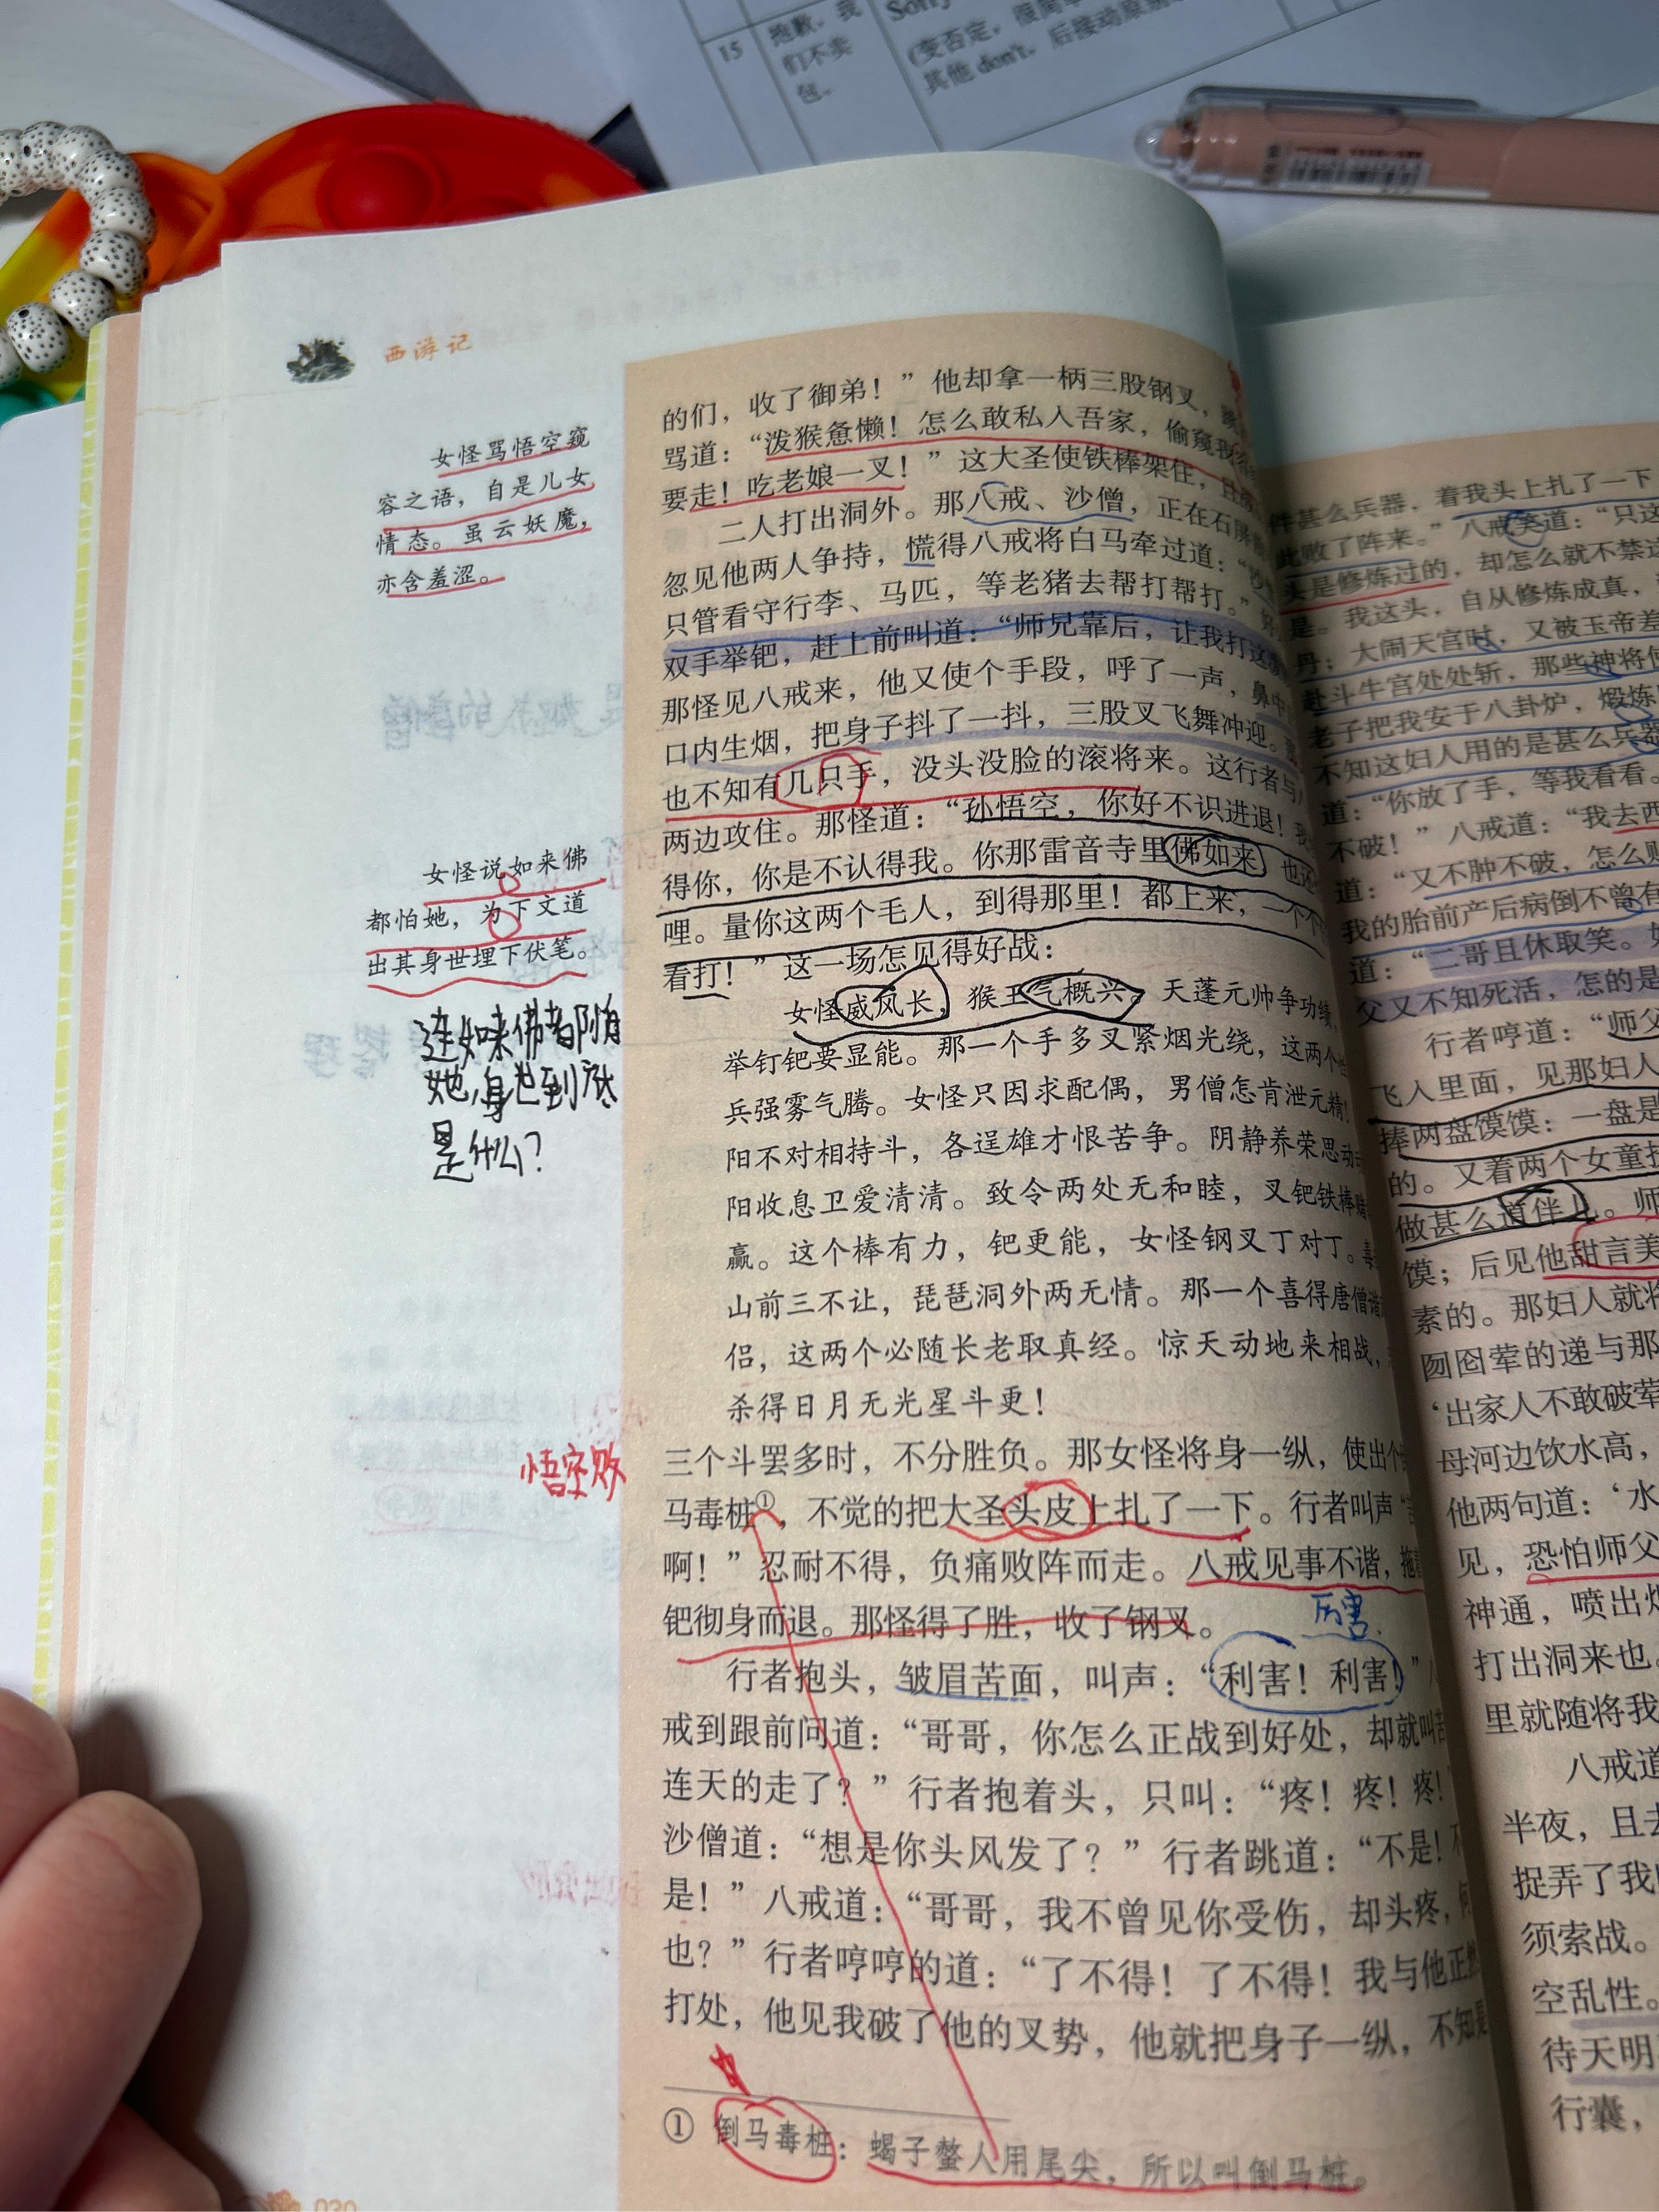 15
抱歉，我
们不卖
包。
Sorry
(变否定，很简单
其他 don't，后接动原
西游记
女怪骂悟空窥
容之语，自是儿女
情态。虽云妖魔，
亦含羞涩。
女怪说如来佛
都怕她，为下文道
出其身世埋下伏笔。
连如来佛都怕
她，身世到底
是什么？
悟空败
的们，收了御弟！”他却拿一柄三股钢叉，
骂道：“泼猴惫懒！怎么敢私入吾家，偷窥我
要走！吃老娘一叉！”这大圣使铁棒架住，且
二人打出洞外。那八戒、沙僧，正在石屏
忽见他两人争持，慌得八戒将白马牵过道：“
只管看守行李、马匹，等老猪去帮打帮打。”
双手举钯，赶上前叫道：“师兄靠后，让我打这
那怪见八戒来，他又使个手段，呼了一声，鼻中
口内生烟，把身子抖了一抖，三股叉飞舞冲迎。
也不知有几只手，没头没脸的滚将来。这行者与
两边攻住。那怪道：“孙悟空，你好不识进退！我
得你，你是不认得我。你那雷音寺里佛如来，也还
哩。量你这两个毛人，到得那里！都上来，一个个
看打！”这一场怎见得好战：
女怪威风长，猴王气概兴。天蓬元帅争功绩，
举钉钯要显能。那一个手多叉紧烟光绕，这两个
兵强雾气腾。女怪只因求配偶，男僧怎肯泄元精！
阳不对相持斗，各逞雄才恨苦争。阴静养荣思动
阳收息卫爱清清。致令两处无和睦，叉钯铁棒赌
赢。这个棒有力，钯更能，女怪钢叉丁对丁。毒
山前三不让，琵琶洞外两无情。那一个喜得唐僧谐
侣，这两个必随长老取真经。惊天动地来相战，
杀得日月无光星斗更！
三个斗罢多时，不分胜负。那女怪将身一纵，使出个
马毒桩①，不觉的把大圣头皮上扎了一下。行者叫声“
啊！”忍耐不得，负痛败阵而走。八戒见事不谐，拖
钯彻身而退。那怪得了胜，收了钢叉。
厉害
行者抱头，皱眉苦面，叫声：“利害！利害！”
戒到跟前问道：“哥哥，你怎么正战到好处，却就叫苦
连天的走了？”行者抱着头，只叫：“疼！疼！疼！
沙僧道：“想是你头风发了？”行者跳道：“不是！不
是！”八戒道：“哥哥，我不曾见你受伤，却头疼，何
也？”行者哼哼的道：“了不得！了不得！我与他正然
打处，他见我破了他的叉势，他就把身子一纵，不知是
① 倒马毒桩：蝎子螫人用尾尖，所以叫倒马桩。
030
件甚么兵器，着我头上扎了一下
此败了阵来。”八戒笑道：“只这
头是修炼过的，却怎么就不禁这
是。我这头，自从修炼成真，
丹；大闹天宫时，又被玉帝差
赴斗牛宫处处斩，那些神将使
老子把我安于八卦炉，煅炼
不知这妇人用的是甚么兵器
道：“你放了手，等我看看。
不破！”八戒道：“我去西
道：“又不肿不破，怎么
我的胎前产后病倒不曾有
道：“二哥且休取笑。如
父又不知死活，怎的是
行者哼道：“师父
飞入里面，见那妇人
捧两盘馍馍：一盘是
的。又着两个女童扶
做甚么道伴儿。师
馍；后见他甜言美
素的。那妇人就将
囫囵荤的递与那
‘出家人不敢破荤
母河边饮水高，
他两句道：‘水
见，恐怕师父
神通，喷出烟
打出洞来也。
里就随将我
八戒道
半夜，且去
捉弄了我
须索战。
空乱性。
待天明
行囊，